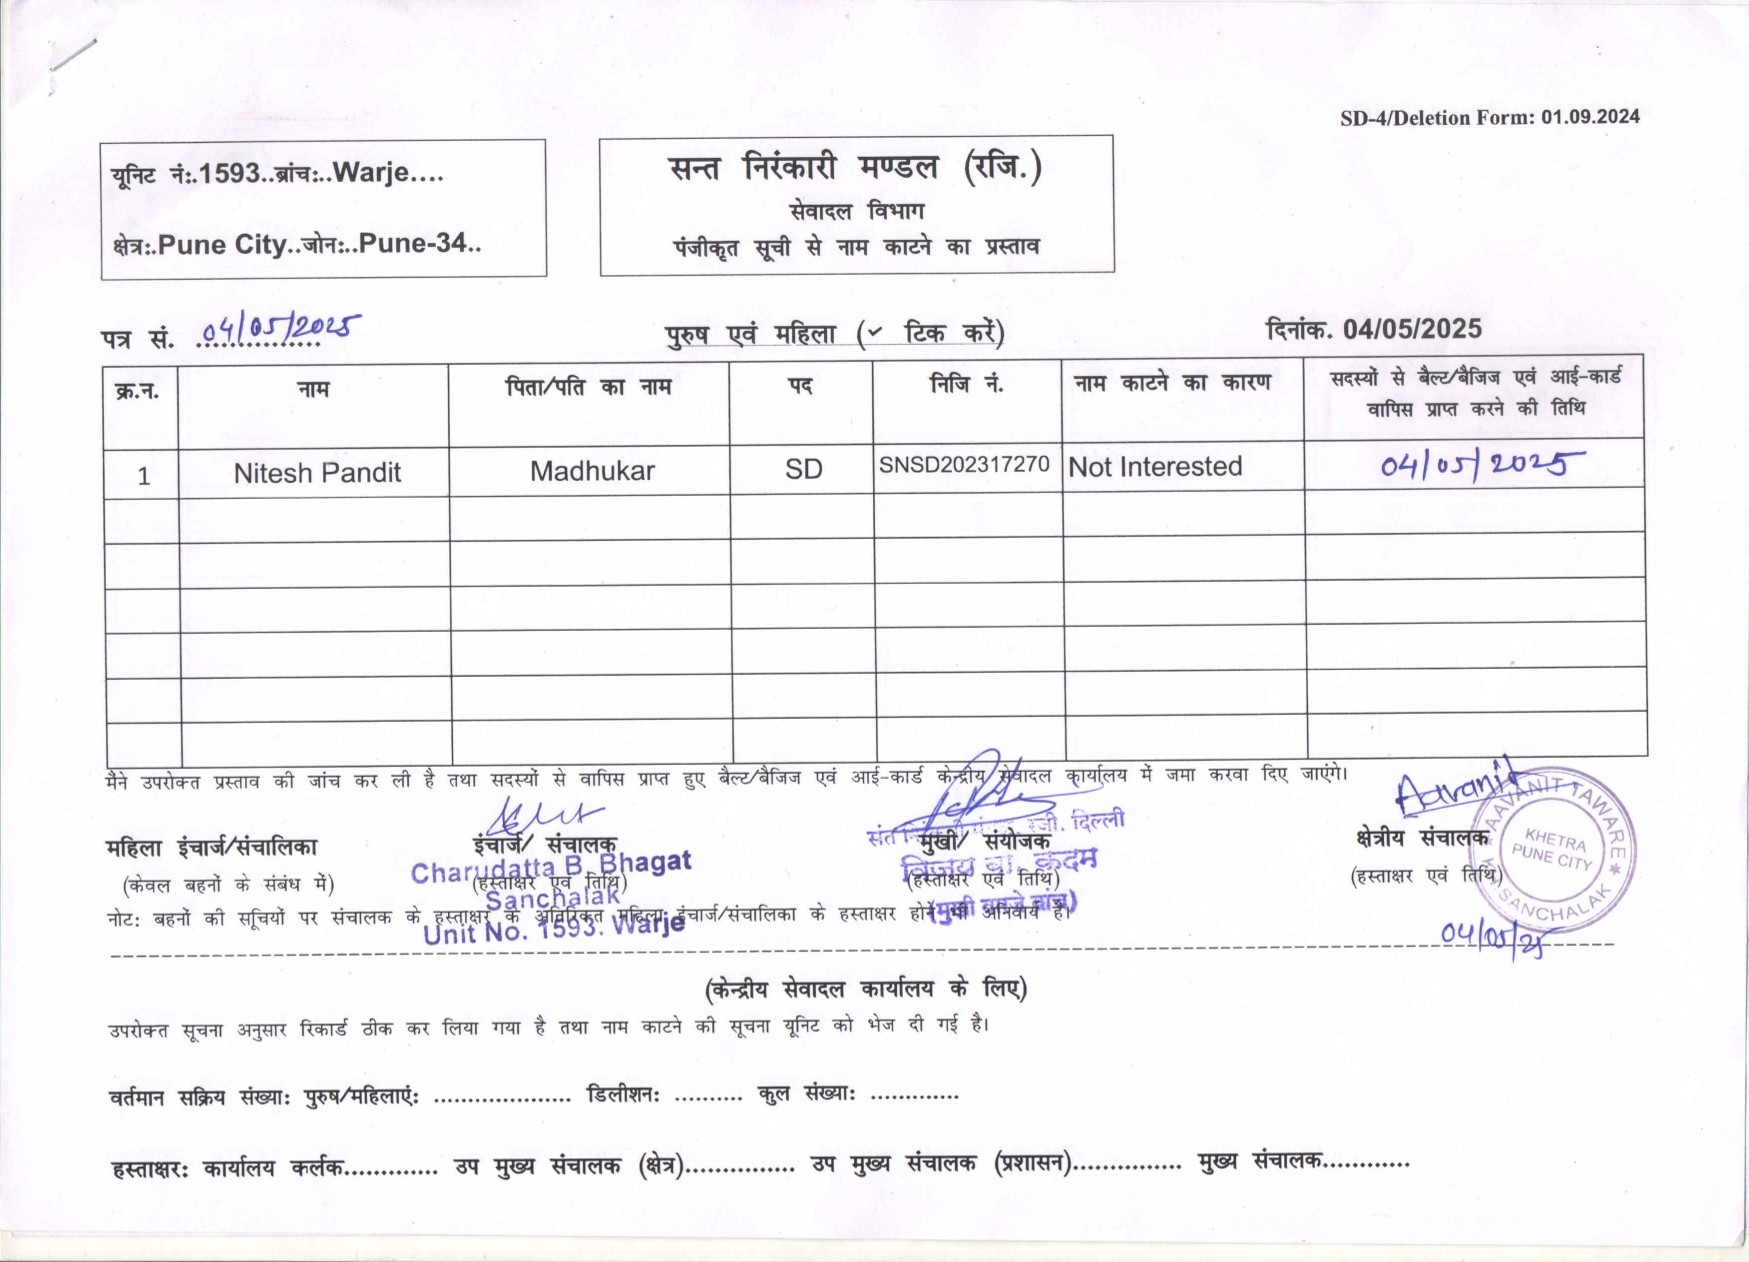 SD-4/Deletion Form: 01.09.2024
यूनिट नं:.1593..ब्रांच:..Warje....
क्षेत्र:.Pune City..जोन:..Pune-34..
सन्त निरंकारी मण्डल (रजि.)
सेवादल विभाग
पंजीकृत सूची से नाम काटने का प्रस्ताव
पत्र सं. 04/05/2025
पुरुष एवं महिला (✓ टिक करें)
दिनांक. 04/05/2025
क्र.न. नाम पिता/पति का नाम पद निजि नं. नाम काटने का कारण सदस्यों से बैल्ट/बैजिज एवं आई-कार्ड
वापिस प्राप्त करने की तिथि
1 Nitesh Pandit Madhukar SD SNSD202317270 Not Interested 04/05/2025
मैंने उपरोक्त प्रस्ताव की जांच कर ली है तथा सदस्यों से वापिस प्राप्त हुए बैल्ट/बैजिज एवं आई-कार्ड केन्द्रीय सेवादल कार्यालय में जमा करवा दिए जाएंगे।
Aavanit
महिला इंचार्ज/संचालिका इंचार्ज/ संचालक मुखी/ संयोजक क्षेत्रीय संचालक
(केवल बहनों के संबंध में) (हस्ताक्षर एवं तिथि) (हस्ताक्षर एवं तिथि) (हस्ताक्षर एवं तिथि)
Charudatta B. Bhagat
Sanchalak
Unit No. 1593. Warje
रजी. दिल्ली
विजय वा. कदम
AAVANIT TAWARE
KHETRA
PUNE CITY
SANCHALAK
नोट: बहनों की सूचियों पर संचालक के हस्ताक्षर के अतिरिक्त महिला इंचार्ज/संचालिका के हस्ताक्षर होने भी अनिवार्य है।
04/05/25
(केन्द्रीय सेवादल कार्यालय के लिए)
उपरोक्त सूचना अनुसार रिकार्ड ठीक कर लिया गया है तथा नाम काटने की सूचना यूनिट को भेज दी गई है।
वर्तमान सक्रिय संख्या: पुरुष/महिलाएं: .................... डिलीशन: .......... कुल संख्या: .............
हस्ताक्षर: कार्यालय कर्लक.............. उप मुख्य संचालक (क्षेत्र)................ उप मुख्य संचालक (प्रशासन)................ मुख्य संचालक.............